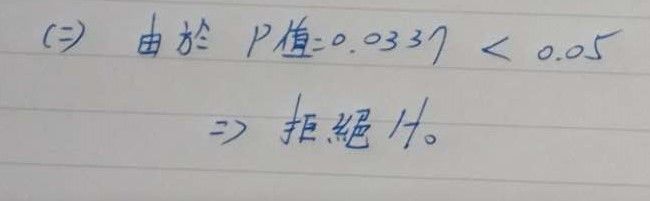 (二) 由於 P值=0.0337 < 0.05
=> 拒絕 H₀